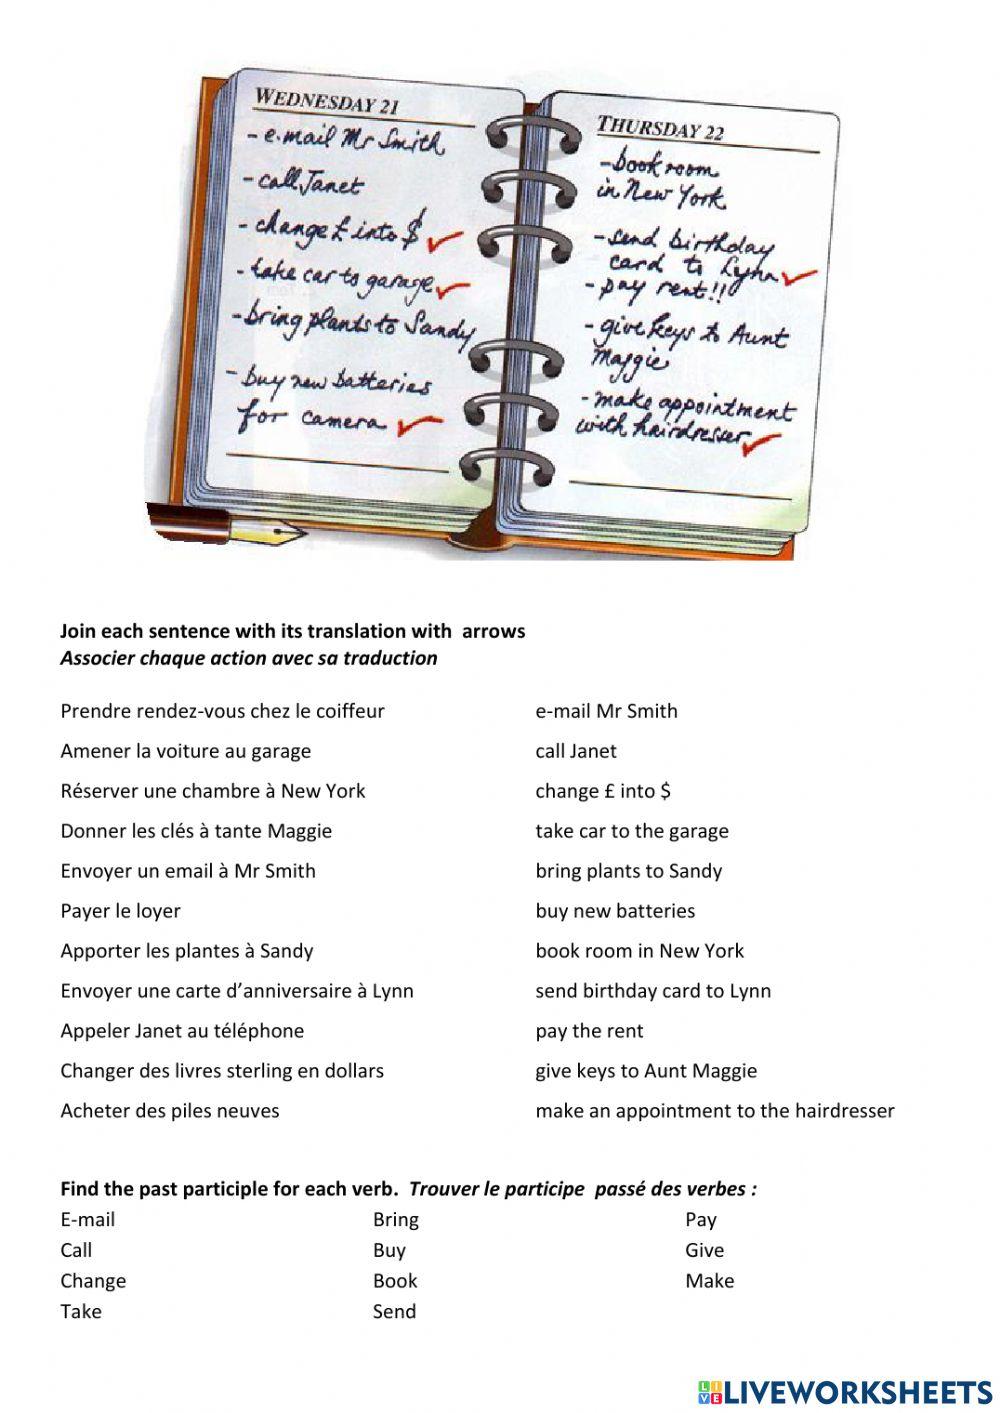 WEDNESDAY 21
- e.mail Mr Smith
- call Janet
- change £ into $
- take car to garage
- bring plants to Sandy
- buy new batteries
for camera
THURSDAY 22
- book room
in New York
- send birthday
card to Lynn
- pay rent!!
- give keys to Aunt
Maggie
- make appointment
with hairdresser
Join each sentence with its translation with arrows
Associer chaque action avec sa traduction
Prendre rendez-vous chez le coiffeur
e-mail Mr Smith
Amener la voiture au garage
call Janet
Réserver une chambre à New York
change £ into $
Donner les clés à tante Maggie
take car to the garage
Envoyer un email à Mr Smith
bring plants to Sandy
Payer le loyer
buy new batteries
Apporter les plantes à Sandy
book room in New York
Envoyer une carte d’anniversaire à Lynn
send birthday card to Lynn
Appeler Janet au téléphone
pay the rent
Changer des livres sterling en dollars
give keys to Aunt Maggie
Acheter des piles neuves
make an appointment to the hairdresser
Find the past participle for each verb. Trouver le participe passé des verbes :
E-mail Bring Pay
Call Buy Give
Change Book Make
Take Send
LIVE LIVEWORKSHEETS